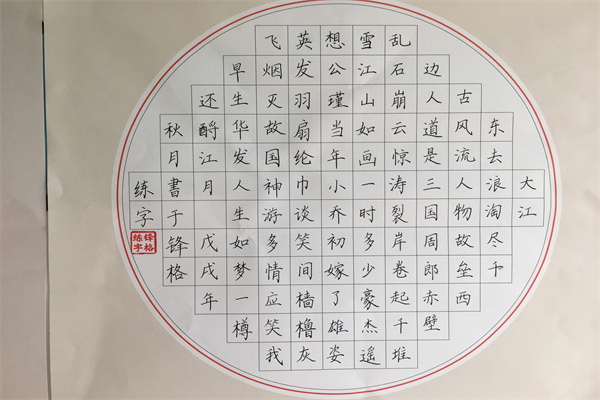 大江
东去浪淘尽千
古风流人物故垒西
边人道是三国周郎赤壁
乱石崩云惊涛裂岸卷起千堆
雪江山如画一时多少豪杰遥
想公瑾当年小乔初嫁了雄姿
英发羽扇纶巾谈笑间樯橹灰
飞烟灭故国神游多情应笑我
早生华发人生如梦一樽
还酹江月 戊戌年
秋月書于锋格
练字
锋格
练字